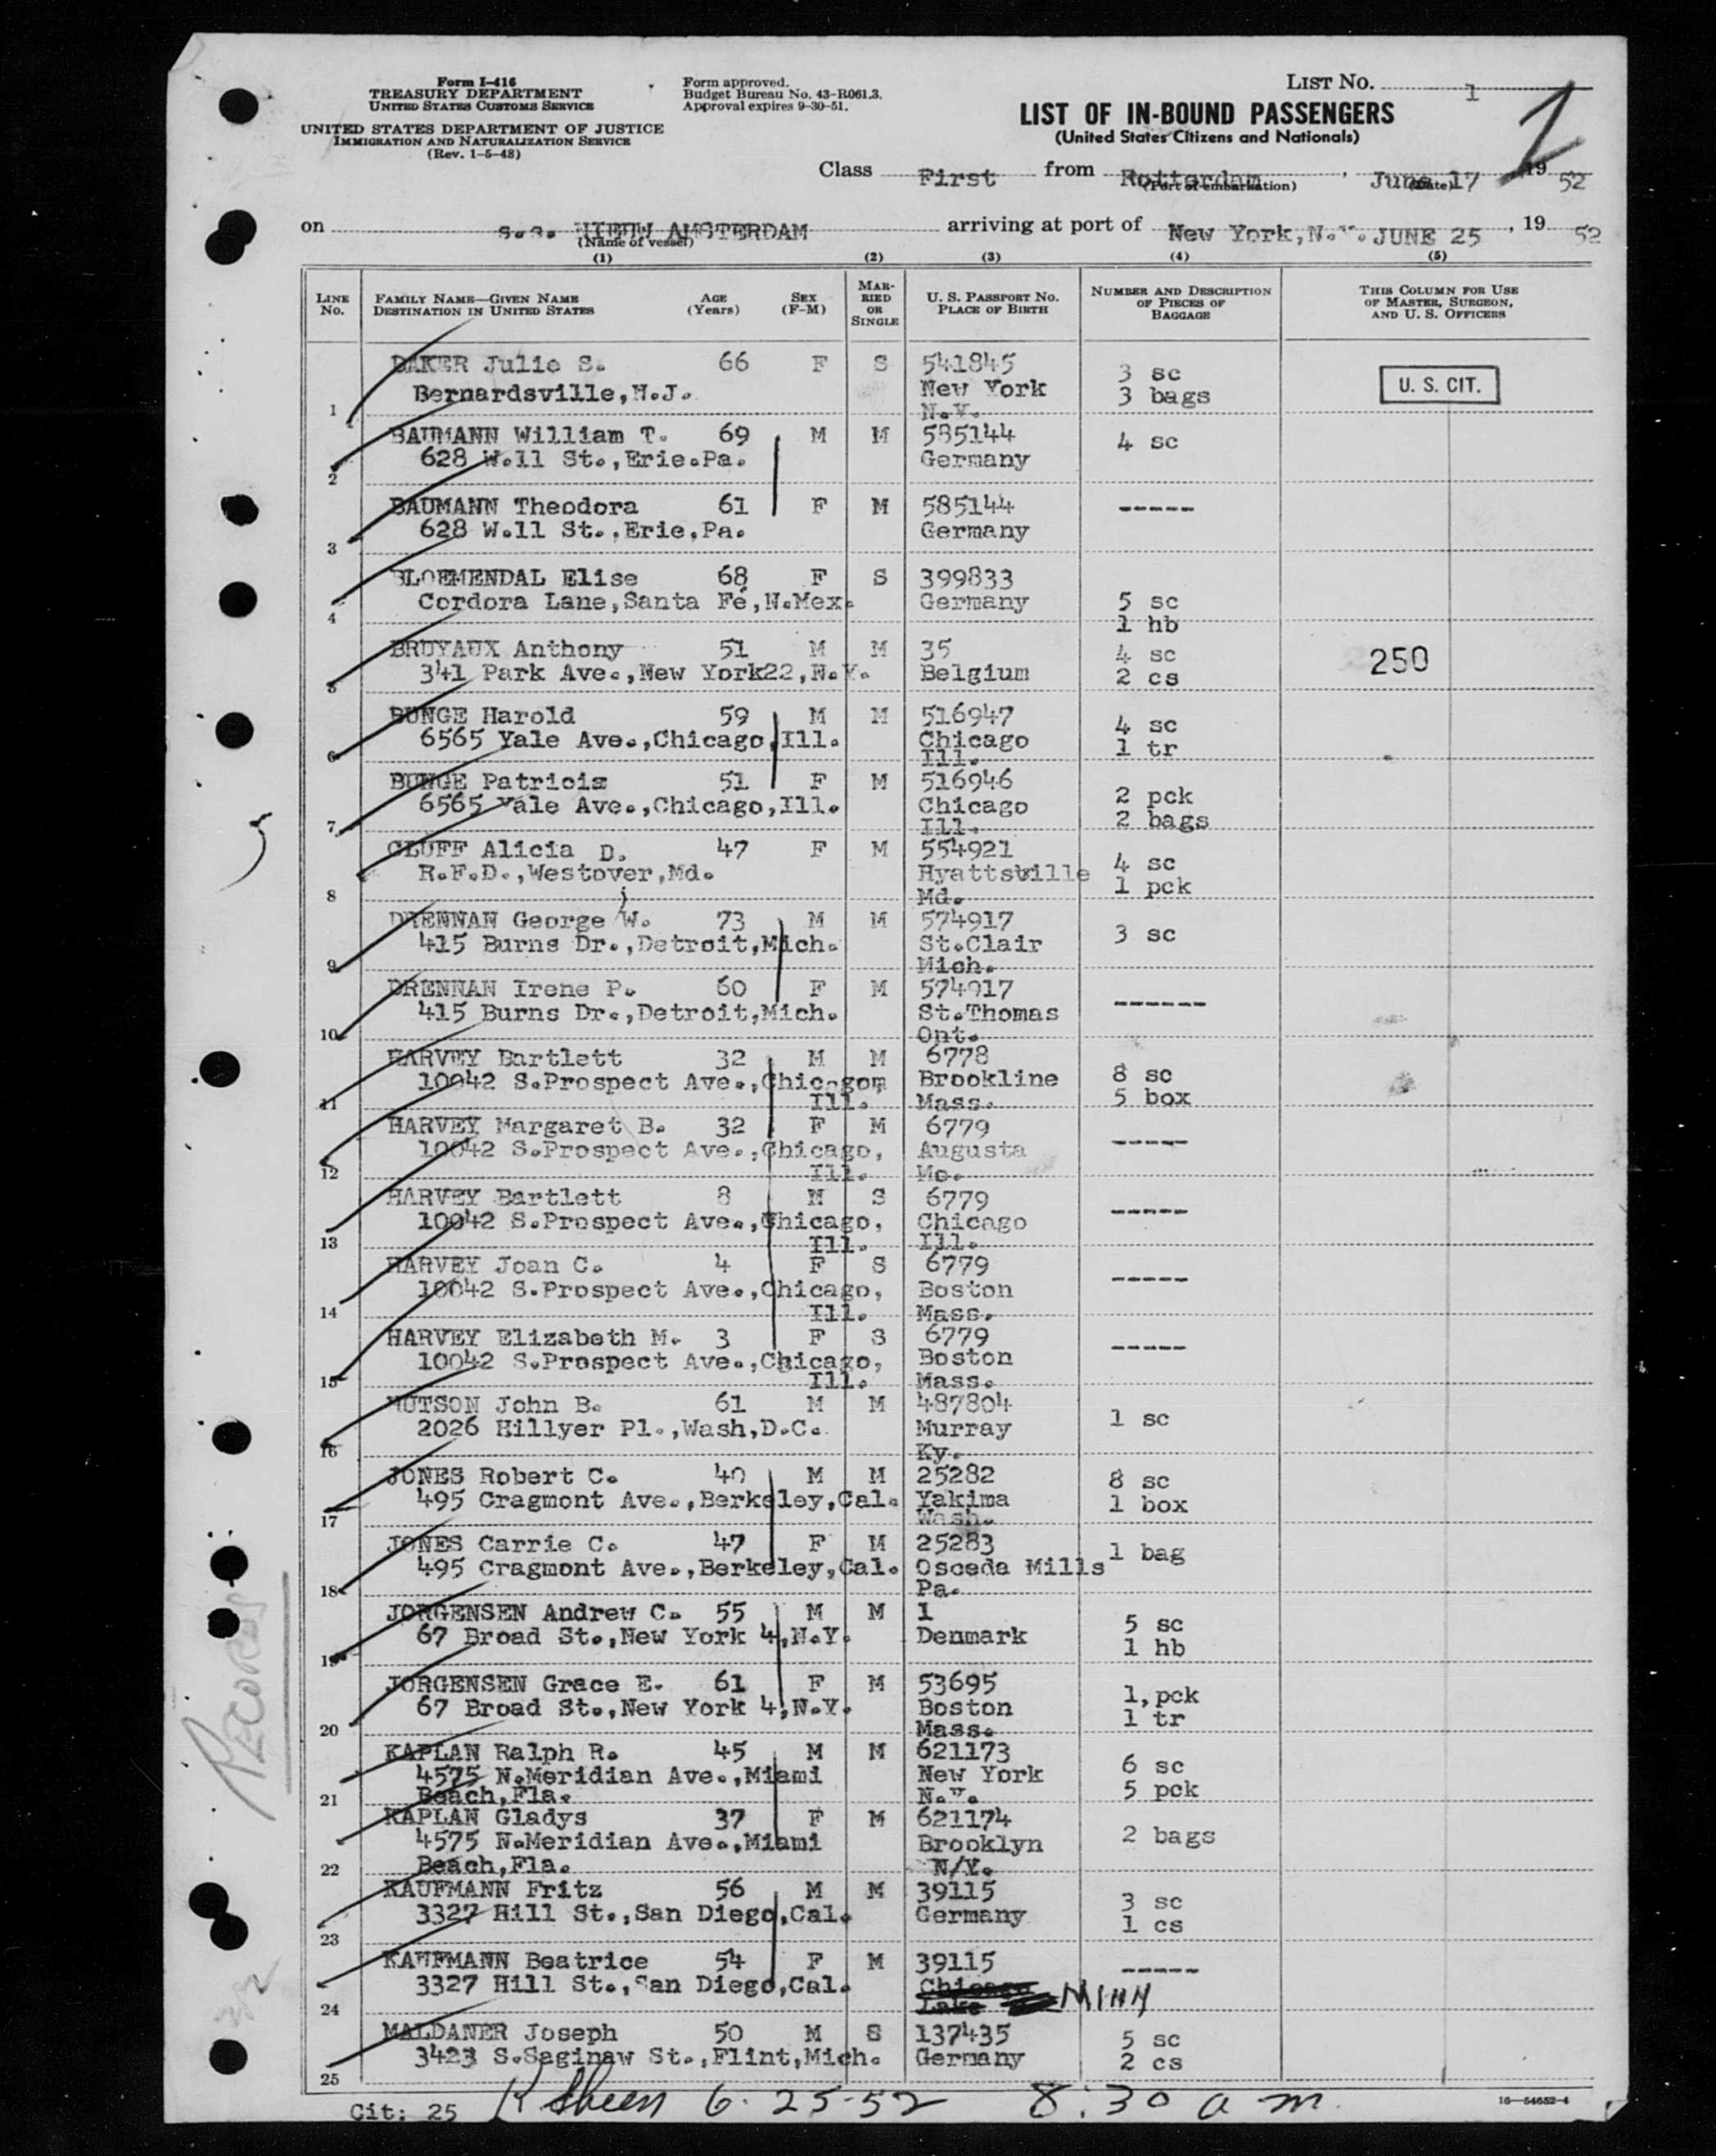 Form I-416
TREASURY DEPARTMENT
UNITED STATES CUSTOMS SERVICE
UNITED STATES DEPARTMENT OF JUSTICE
IMMIGRATION AND NATURALIZATION SERVICE
(Rev. 1-5-48)
Form approved.
Budget Bureau No. 43-R061.3.
Approval expires 9-30-51.
LIST NO. 1
LIST OF IN-BOUND PASSENGERS
(United States Citizens and Nationals)
Class First from Rotterdam, June 17 19 52
(Port of embarkation) (Date)
on s.s. NIEUW AMSTERDAM arriving at port of New York, N.Y. JUNE 25, 19 52
(Name of vessel)
(1) (2) (3) (4) (5)
LINE NO. FAMILY NAME—GIVEN NAME DESTINATION IN UNITED STATES AGE (Years) SEX (F-M) MARRIED OR SINGLE U. S. PASSPORT NO. PLACE OF BIRTH NUMBER AND DESCRIPTION OF PIECES OF BAGGAGE THIS COLUMN FOR USE OF MASTER, SURGEON, AND U. S. OFFICERS
BAKER Julie S. 66 F S 541845 3 sc U. S. CIT.
1 Bernardsville, N.J. New York N.Y. 3 bags
BAUMANN William T. 69 M M 585144 4 sc
2 628 W.11 St., Erie.Pa. Germany
BAUMANN Theodora 61 F M 585144 -----
3 628 W.11 St., Erie, Pa. Germany
BLOEMENDAL Elise 68 F S 399833 5 sc
4 Cordora Lane, Santa Fé, N.Mex. Germany 1 hb
BRUYAUX Anthony 51 M M 35 4 sc 250
5 341 Park Ave., New York22, N.Y. Belgium 2 cs
BUNGE Harold 59 M M 516947 4 sc
6 6565 Yale Ave., Chicago, Ill. Chicago Ill. 1 tr
BUNGE Patricia 51 F M 516946 2 pck
7 6565 Yale Ave., Chicago, Ill. Chicago Ill. 2 bags
CLUFF Alicia D. 47 F M 554921 4 sc
8 R.F.D., Westover, Md. Hyattsville Md. 1 pck
DRENNAN George W. 73 M M 574917 3 sc
9 415 Burns Dr., Detroit, Mich. St.Clair Mich.
DRENNAN Irene P. 60 F M 574917 ------
10 415 Burns Dr., Detroit, Mich. St.Thomas Ont.
HARVEY Bartlett 32 M M 6778 8 sc
11 10042 S.Prospect Ave., Chicagom Ill. Brookline Mass. 5 box
HARVEY Margaret B. 32 F M 6779 -----
12 10042 S.Prospect Ave., Chicago, Ill. Augusta Me.
HARVEY Bartlett 8 M S 6779 -----
13 10042 S.Prospect Ave., Chicago, Ill. Chicago Ill.
HARVEY Joan C. 4 F S 6779 -----
14 10042 S.Prospect Ave., Chicago, Ill. Boston Mass.
HARVEY Elizabeth M. 3 F S 6779 -----
15 10042 S.Prospect Ave., Chicago, Ill. Boston Mass.
HUTSON John B. 61 M M 487804 1 sc
16 2026 Hillyer Pl., Wash, D.C. Murray Ky.
JONES Robert C. 40 M M 25282 8 sc
17 495 Cragmont Ave., Berkeley, Cal. Yakima Wash. 1 box
JONES Carrie C. 47 F M 25283 1 bag
18 495 Cragmont Ave., Berkeley, Cal. Osceda Mills Pa.
JORGENSEN Andrew C. 55 M M 1 5 sc
19 67 Broad St., New York 4, N.Y. Denmark 1 hb
JORGENSEN Grace E. 61 F M 53695 1, pck
20 67 Broad St., New York 4, N.Y. Boston Mass. 1 tr
KAPLAN Ralph R. 45 M M 621173 6 sc
21 4575 N.Meridian Ave., Miami Beach, Fla. New York N.Y. 5 pck
KAPLAN Gladys 37 F M 621174 2 bags
22 4575 N.Meridian Ave., Miami Beach, Fla. Brooklyn N/Y.
KAUFMANN Fritz 56 M M 39115 3 sc
23 3327 Hill St., San Diego, Cal. Germany 1 cs
KAUFMANN Beatrice 54 F M 39115 -----
24 3327 Hill St., San Diego, Cal. Chicago Lake MINN
MALDANER Joseph 50 M S 137435 5 sc
25 3423 S.Saginaw St., Flint, Mich. Germany 2 cs
Cit: 25 6-25-52 8:30 am.
16—54652-4
RECORDS